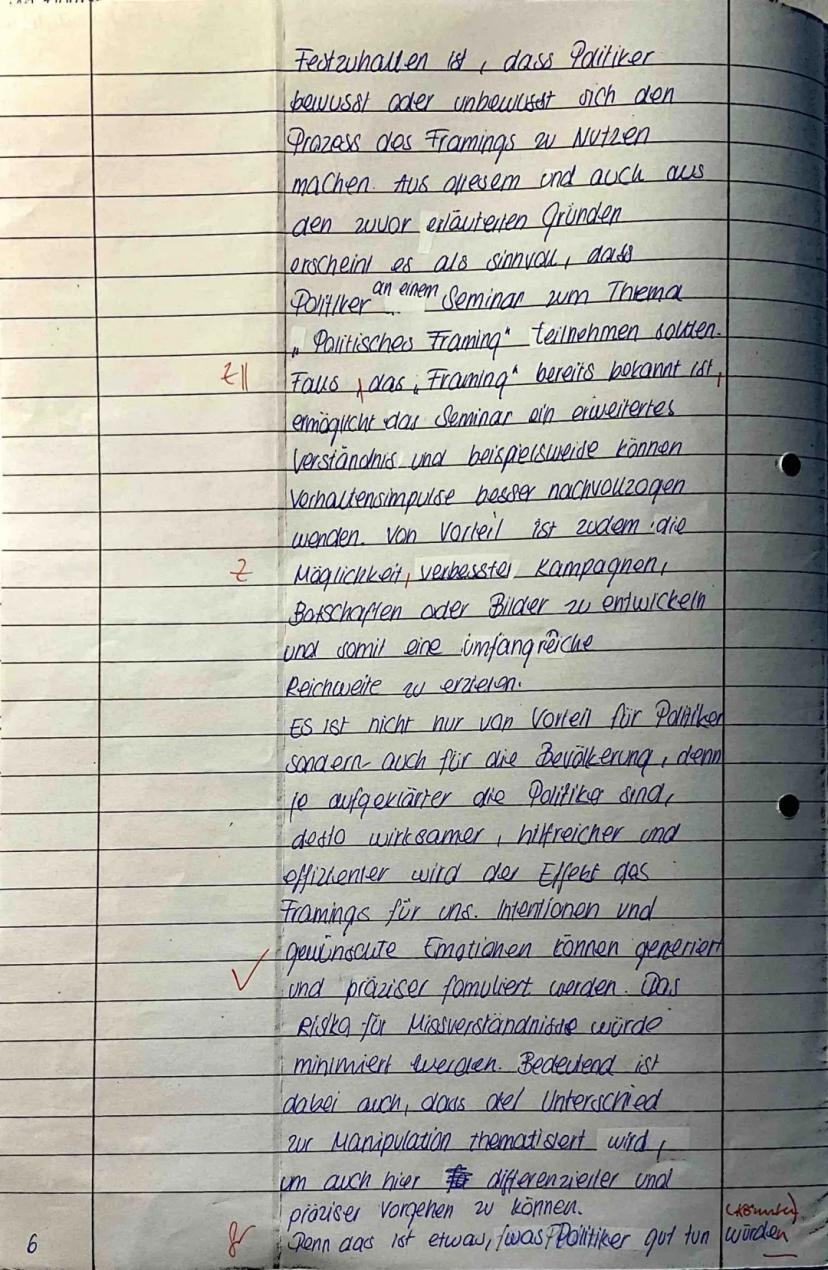 Festzuhalten ist, dass Politiker
bewusst oder unbewusst sich den
Prozess des Framings zu Nutzen
machen. Aus diesem und auch aus
den zuvor erläuterten Gründen
erscheint es als sinnvoll, dass
Politiker an einem Seminar zum Thema
„Politisches Framing“ teilnehmen sollten.
Z|| Falls, das „Framing“ bereits bekannt ist,
ermöglicht das Seminar ein erweitertes
Verständnis und beispielsweise können
Verhaltensimpulse besser nachvollzogen
werden. Von Vorteil ist zudem die
Z Möglichkeit, verbesster Kampagnen,
Botschaften oder Bilder zu entwickeln
und somit eine umfangreiche
Reichweite zu erzielen.
Es ist nicht nur von Vorteil für Politiker
sondern auch für die Bevölkerung, denn
je aufgeklärter die Politiker sind,
desto wirksamer, hilfreicher und
effizienter wird der Effekt des
Framings für uns. Intentionen und
gewünschte Emotionen können generiert
✓ und präziser fomuliert werden. Das
Risiko für Missverständnisse würde
minimiert werden. Bedeutend ist
dabei auch, dass der Unterschied
zur Manipulation thematisiert wird,
um auch hier differenzierter und
präziser vorgehen zu können.
(könnte)
6 gr Denn das ist etwas, was Politiker gut tun würden